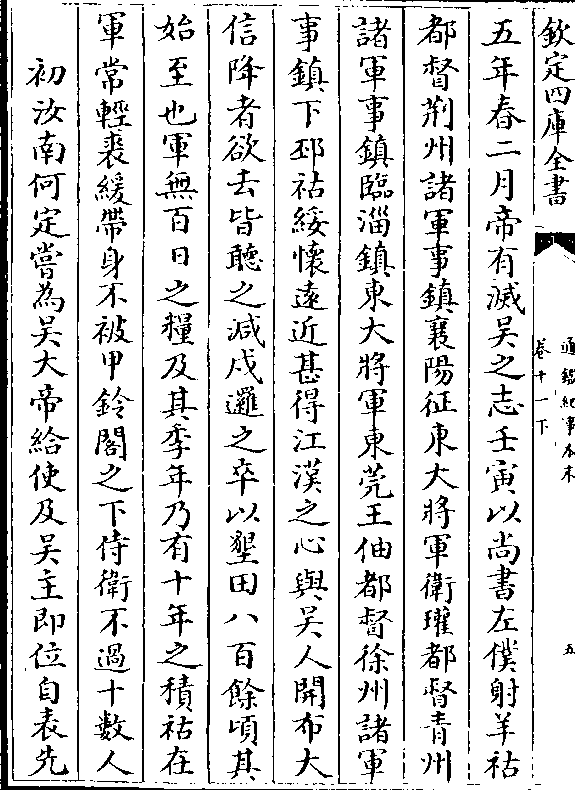 欽定四庫全書
通鑑紀事本末
卷十一下
五
五年春二月帝有滅吳之志壬寅以尚書左僕射羊祜
都督荆州諸軍事鎮襄陽征東大將軍衛瓘都督青州
諸軍事鎮臨淄鎮東大將軍東莞王伷都督徐州諸軍
事鎮下邳祜綏懷遠近甚得江漢之心與吳人開布大
信降者欲去皆聽之減戍邏之卒以墾田八百餘頃其
始至也軍無百日之糧及其季年乃有十年之積祜在
軍常輕裘緩帶身不被甲鈴閣之下侍衛不過十數人
初汝南何定嘗為吳大帝給使及吳主即位自表先